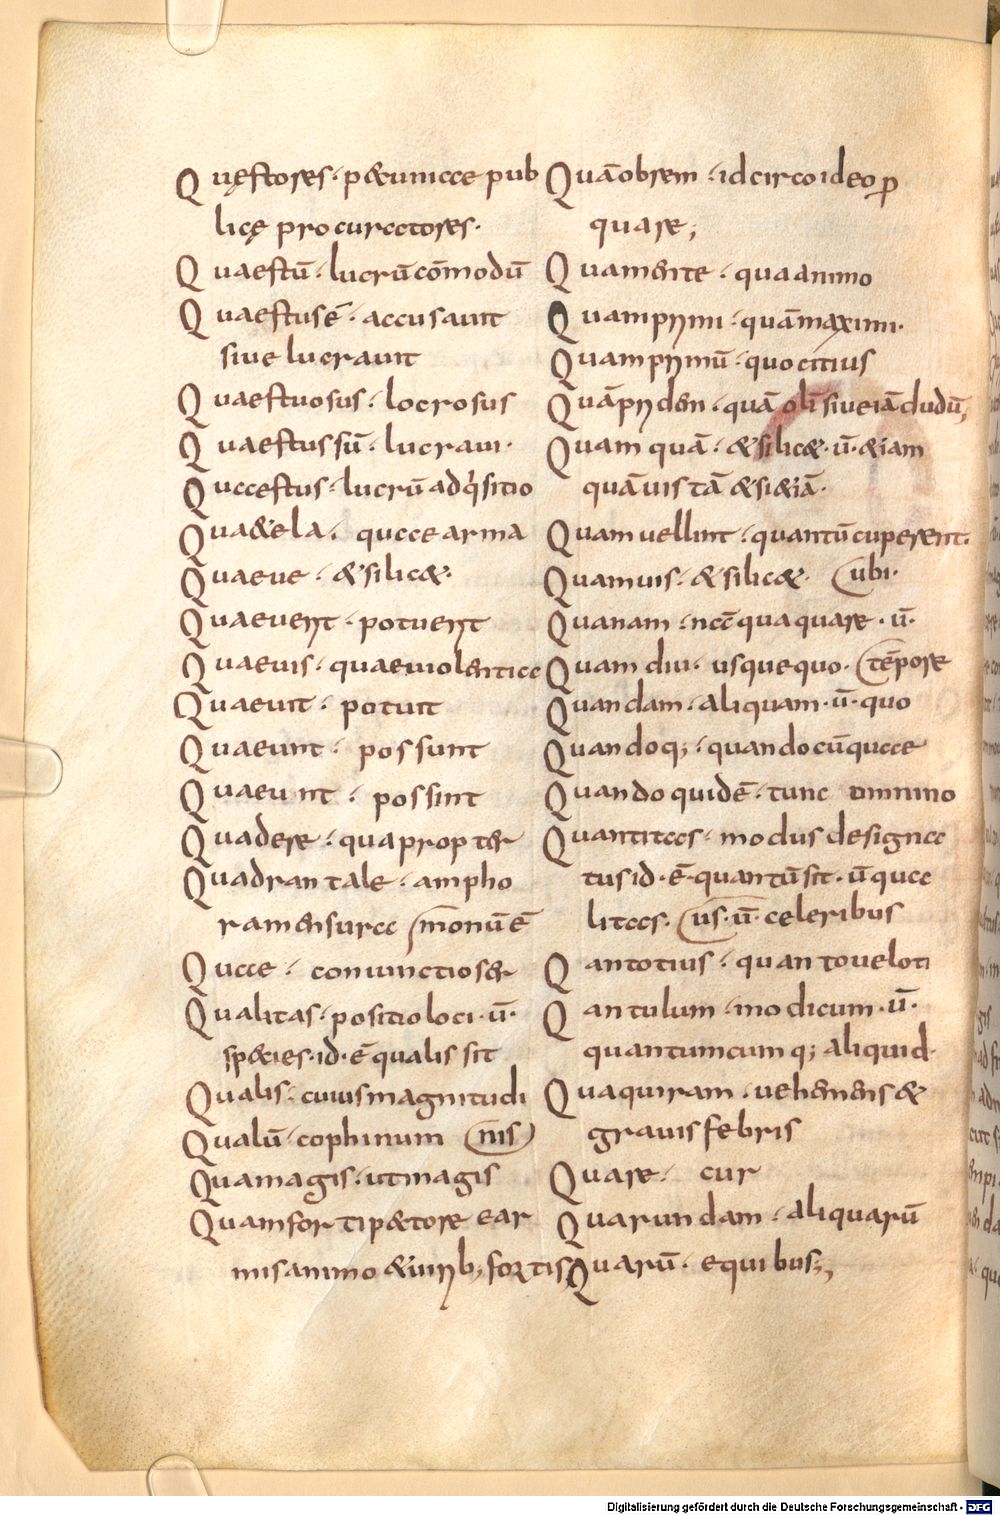 Quęstores · p&cuniae pub
licę procuratores ·
Quaestū · lucrū cōmodū
Quaestus ē · accusauit
siue lucrauit
Quaestuosus · locrosus
Quaestus sū · lucraui ·
Quaestus · lucrū adq̇sitio
Quad&ela · quae arma
Quaeue · &silic& ·
Quaeuerit · potuerit
Quaeuis · quaeuiolentia
Quaeuit · potuit
Quaeunt · possunt
Quaeunt · possint
Quadere · quapropter
Quadrantale · ampho
ra mensura (m̄onū ē
Quae · coniunctio ser
Qualitas · positio loci · ū ·
sp&cies · id · ē qualis sit
Qualis · cuius magnitudi
Qualū · cophinum (nis)
Quamagis · utmagis
Quam forti p&tore ear
mis animo &uirib; fortis
Quāobrem · idcirco ideo ꝑ
quare;
Quamente · qua animo
Quamprimi · quāmaximi ·
Quamprimū · quocitius
Quāpridem · quā olī siue iā dudū;
Quam quā · &silic& · ū · &iam
quāuis tā &si&iā ·
Quam uellint · quantū cuperent ·
Quamuis · &silic& · (ubi ·
Quanam · nā qua quare · ū ·
Quam diu · usquequo · (tēpore
Quandam · aliquam · ū · quo
Quandoq; · quandocūquae
Quando quidē · tunc omnino
Quantitas · modus designa
tus id · ē · quantū sit · ū qua
litas · (us · ū · celeribus
Q antotius · quanto ueloti
Q antulum · modicum · ū ·
quantumcumq; aliquid ·
Quaquiram · uehemens &
grauis febris
Quare · cur
Quarundam · aliquarū
Quarū · equibus;,
Digitalisierung gefördert durch die Deutsche Forschungsgemeinschaft - DFG